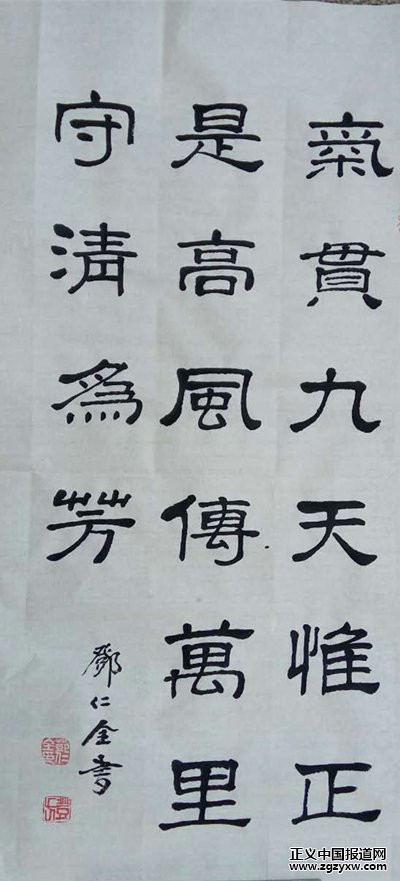 氣貫九天惟正
是高風傳萬里
守清為芳
鄧仁全書
正义中国报道网
www.zgzyxw.com